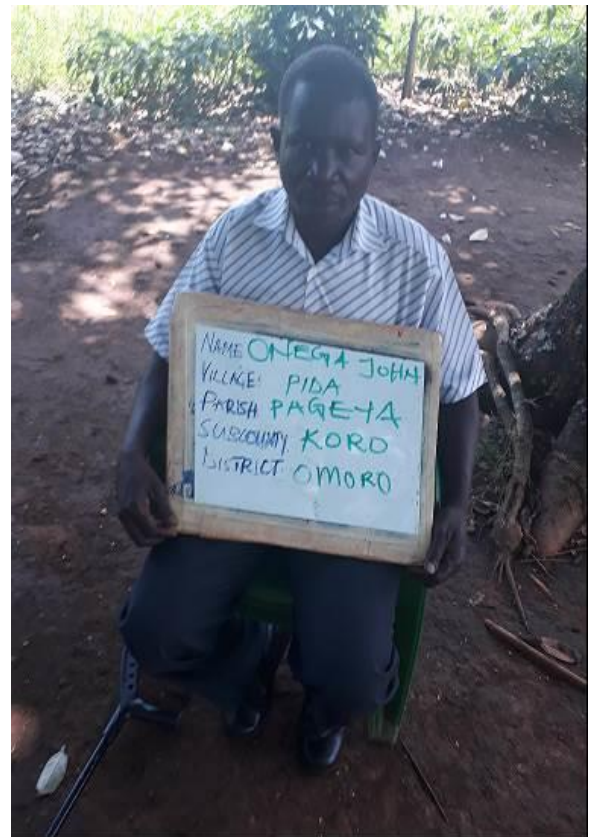 NAME ONEGA JOHN
VILLAGE: PIDA
PARISH PAGEYA
SUBCOUNTY. KORO
DISTRICT OMORO